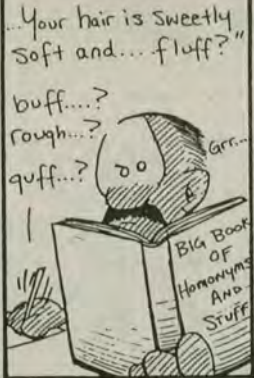 ...Your hair is sweetly
soft and.... fluff?"
buff....?
rough...?
quff...?
Grr...
BIG BOOK
OF
HOMONYMS
AND
STUFF